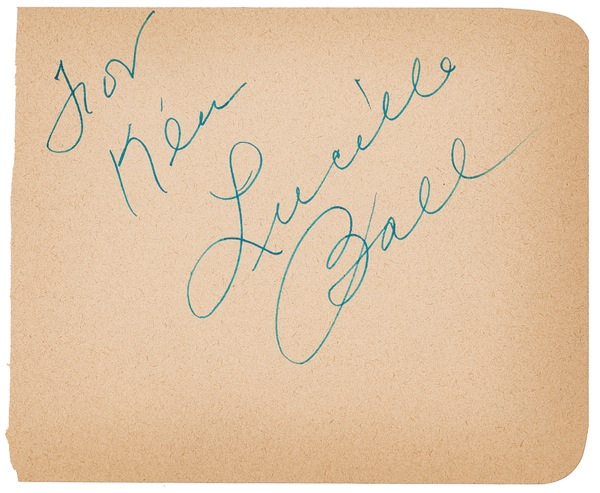 For
Ken
Lucille
Ball